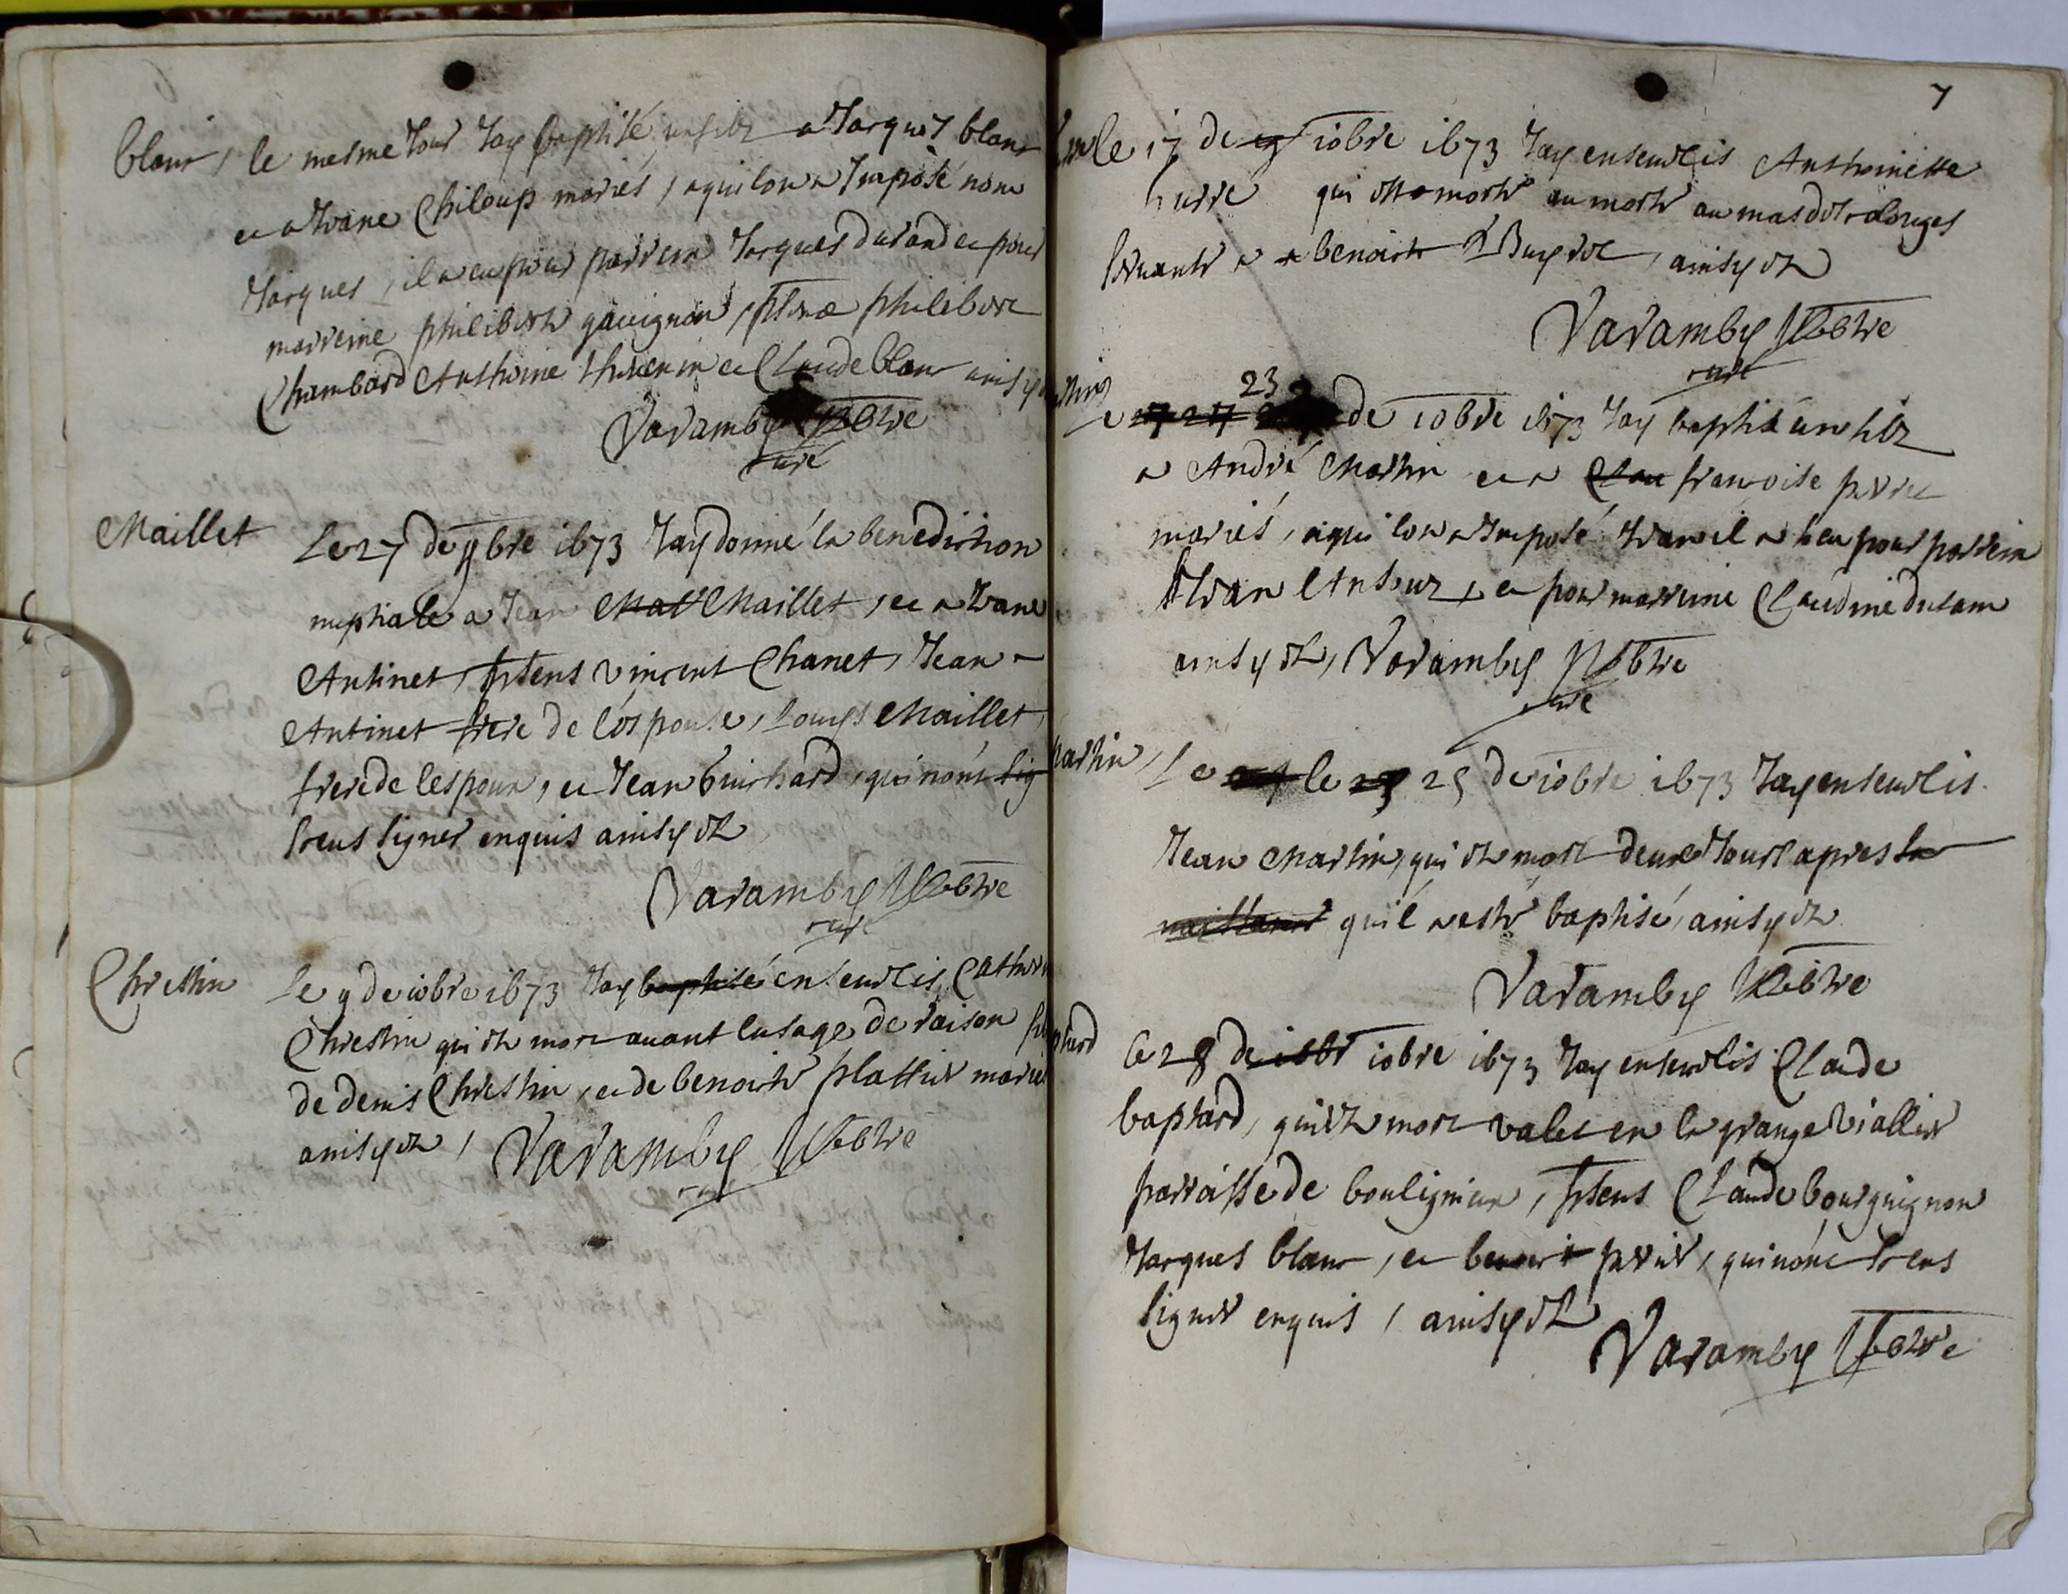 blanc, le mesme Jour Jay baptisé un filz a Jacques blanc
et a Jeane Chiloup mariés, a qui lon a Imposé nom
Jacques, il a eu pour parrein Jacques durand et pour
marreine philiberte gauignon, pñs philibert
Chambard Anthoine thevenin et Claude blanc ainsy
Varamby pbtre
curé
Maillet Le 27 de 9bre 1673 Jay donné la benediction
nuptiale a Jean Mall Maillet, et a Jeane
Antinet, pñtens vincent Chanet, Jean
Antinet frere de lespouse, Louys Maillet,
frere de lespoux, et Jean Guichard, qui nont sig
sceus signer enquis ainsy est
Varamby pbtre
curé
Chrestin Le 9 de 10bre 1673 Jay baptisé enseuelis Cather
Chrestin qui est mort auant lusage de raison
de denis Chrestin, et de benoiste plattier marié
ainsy est, Varamby pbtre
curé
7
le 17 de 9 10bre 1673 Jay enseuelis Anthoinette
qui est morte au morte au mas des alonges
seruante a a benoist Buyret, ainsy est
Varamby pbtre
curé
23
27 27 de 10bre 1673 Jay baptisé un filz
a André Martin et a Clau francoise perret
mariés, a qui lon a Imposé Jean il a heu pour parrein
Jean, et pour marreine Claudine dulam
ainsy est, Varamby pbtre
curé
martin, Le le 25 25 de 10bre 1673 Jay enseuelis
Jean Martin, qui est mort deux Jours apres sa
naissance quil a esté baptisé, ainsy est
Varamby pbtre
Le 28 de 10br 10bre 1673 Jay enseuelis Claude
baptard, qui est mort valet en la grange Viallier
parroisse de bouligneux, pñtens Claude bourguignon
Jacques blanc, et benoit perrier, qui nont sceus
signer enquis, ainsy est
Varamby pbtre